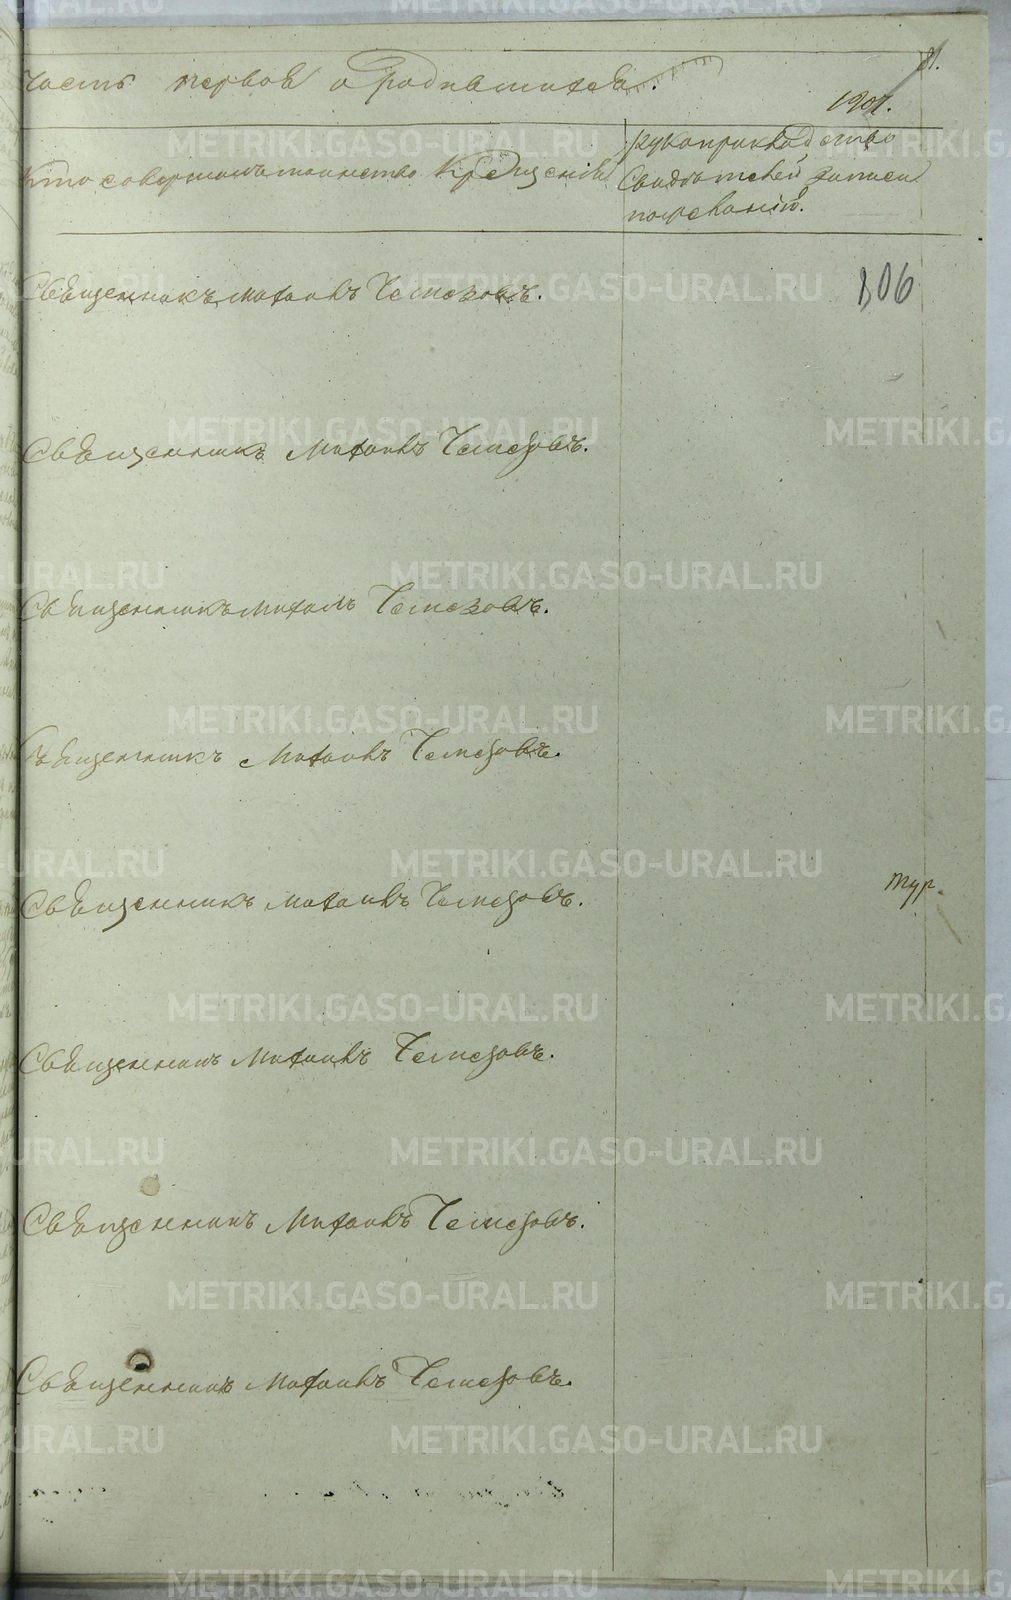 81.
Часть первая о родившихся.
1901.
Кто совершалъ таинство Крещенія
Рукоприкладство
Свидѣтелей записи
по желанію.
Священникъ Михаилъ Чемезовъ.
106
Священникъ Михаилъ Чемезовъ.
Священникъ Михаилъ Чемезовъ.
Священникъ Михаилъ Чемезовъ.
Священникъ Михаилъ Чемезовъ.
Тур.
Священникъ Михаилъ Чемезовъ.
Священникъ Михаилъ Чемезовъ.
Священникъ Михаилъ Чемезовъ.
METRIKI.GASO-URAL.RU